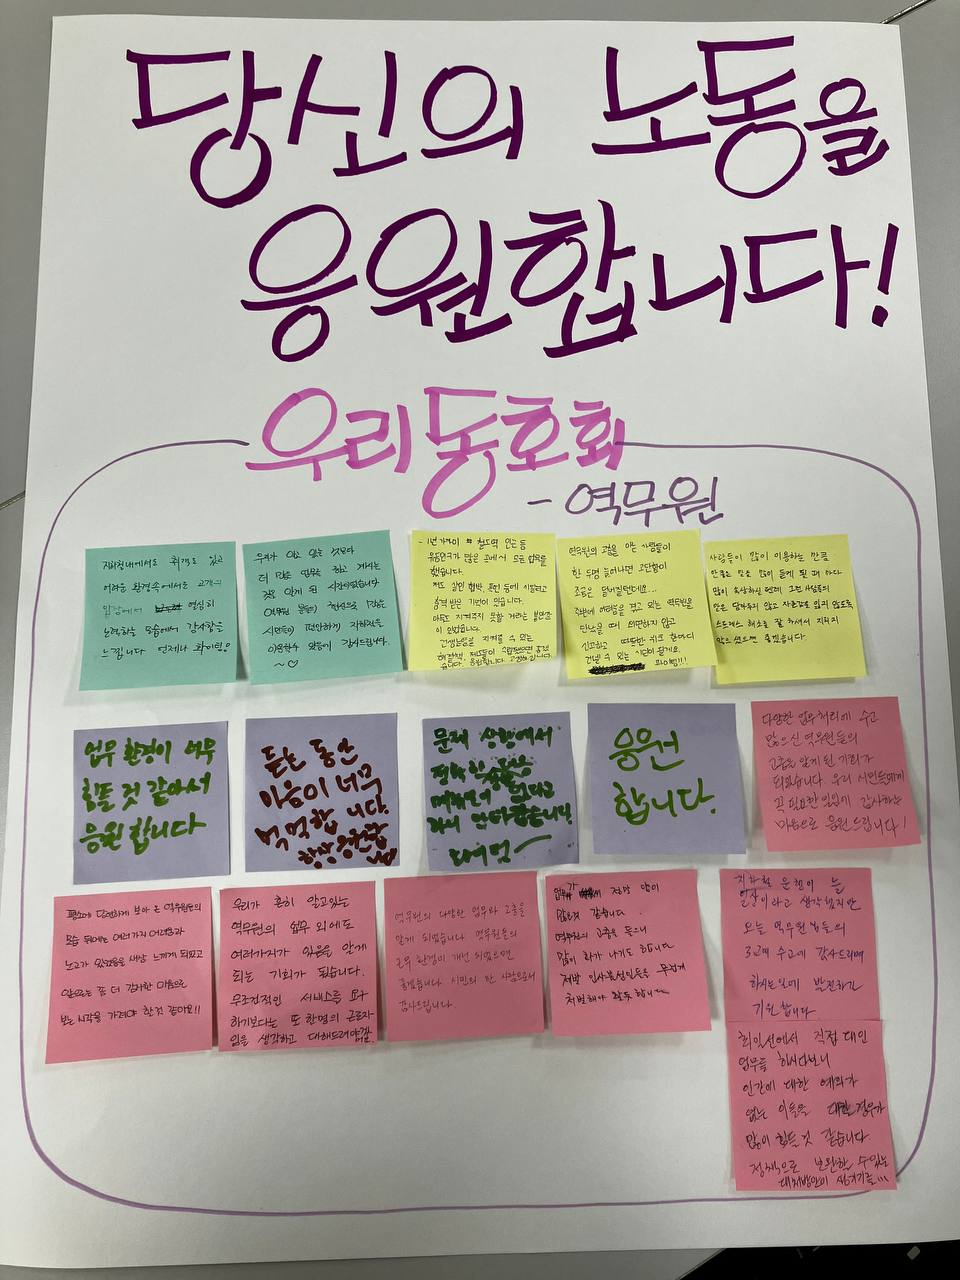 당신의 노동을
응원합니다!
우리동호회
- 역무원
지하철내에서도 취객도 있고
어려운 환경속에서도 고객의
입장에서 열심히
노력하는 모습에서 감사함을
느낍니다 언제나 화이팅!
우리가 알고 있는 것보다
더 많은 업무를 하고 계시는
것을 알게 된 시간이었습니다
역무원 분들이 계심으로 많은
시민들이 편안하게 지하철을
이용할수 있음에 감사드립니다.
~♡
유동인구가 많은 곳에서 으로 업무를
했습니다.
저도 같은 협박, 폭언 등에 시달리고
충격 받은 기억이 있습니다.
아무도 지켜주지 못할 거라는 불안감
이 컸었습니다.
근생노동을 지켜줄 수 있는
해결책, 제도들이 수립됐으면 좋겠
습니다. 응원합니다. 고생하십니다.
역무원의 고충을 아는 사람들이
한 두명 늘어나면 고단함이
조금은 덜어질텐데요..
주변에 어려움을 겪고 있는 역무원을
만났을 때 외면하지 않고
신고하고 따뜻한 위로 한마디
건넬 수 있는 시민이 될게요.
화이팅!!!
사람들이 많이 이용하는 만큼
안좋은 말은 많이 듣게 될 때 마다
많이 속상하실텐데 그런 사람들의
말은 담아두지 않고 상처받고 입지 않도록
스트레스 해소를 잘 하셔서 지치지
않으셨으면 좋겠습니다.
업무 환경이 너무
힘들 것 같아서
응원합니다
듣는 동안
마음이 너무
먹먹합니다.
항상 응원함
문제 상황에서
없다고
하니 안타깝습니다.
응원
합니다.
다양한 업무처리에 수고
많으신 역무원들의
고충을 알게 된 기회가
되었습니다 우리 시민들에게
꼭 필요한 일임에 감사하는
마음으로 응원드립니다!
평소에 당연하게 보아 온 역무원분의
모습 뒤에는 여러가지 어려움과
노고가 있었음을 새삼 느끼게 되었고
앞으로는 좀 더 감사한 마음으로
보는 시각을 가져야 한것 같아요!!
우리가 흔히 알고있는
역무원의 업무 외에도
여러가지가 있음을 알게
되는 기회가 됐습니다.
무조건적인 서비스를 요구
하기보다는 또 한명의 근로자
임을 생각하고 대해드려야겠.
역무원의 다양한 업무와 고충을
알게 되었습니다 역무원들의
근무 환경이 개선 되었으면
좋겠습니다 시민의 한 사람으로서
감사드립니다.
업무가 정말 많이
많으신 것 같습니다.
역무원의 고충을 들으니
많이 화가 나기도 합니다
제발 인사불성인들은 무겁게
처벌해야 할듯 합니다
지하철 운행이 늘
일상이라고 생각했지만
오늘 역무원분들의
노고에 수고에 감사드리며
하시는일에 발전하길
기원합니다
최일선에서 직접 대인
업무를 하시다보니
인간에 대한 예의가
없는 이들을 대할 경우가
많이 힘들 것 같습니다
정책으로 보완할 수있는
대처방안이 생기기를...